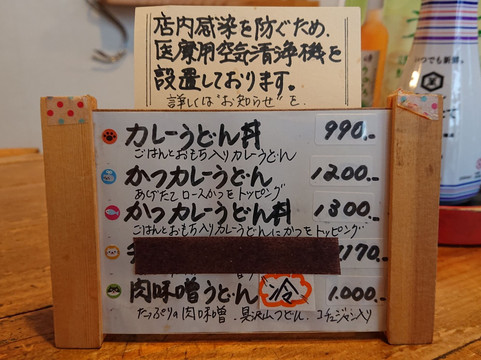 店内感染を防ぐため、
医療用空気清浄機を
設置しております。
詳しくは"お知らせ"を
いつでも新鮮
カレーうどん丼 990.-
ごはんとおもち入りカレーうどん
かつカレーうどん 1200.-
あげたてロースかつをトッピング
かつカレーうどん丼 1300.-
ごはんとおもち入りカレーうどんにかつをトッピング
1170.-
肉味噌うどん 冷 1.000.-
たっぷりの肉味噌、具沢山うどん、コチュジャン入り